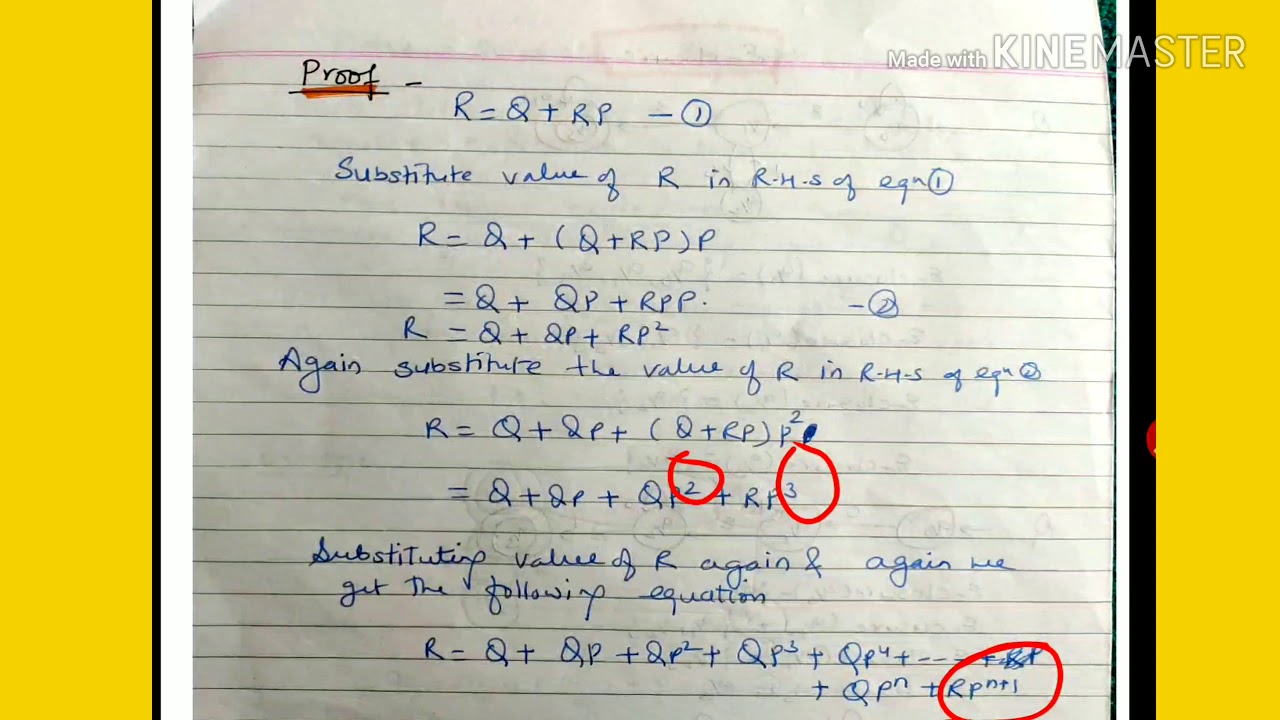 Made with KINEMASTER
Proof -
R = Q + RP — ①
Substitute value of R in R.H.S of eqn ①
R = Q + (Q+RP)P
= Q + QP + RPP. — ②
R = Q + QP + RP²
Again substitute the value of R in R.H.S of eqn ②
R = Q + QP + (Q+RP)P²
= Q + QP + QP² + RP³
Substituting value of R again & again we
get the following equation
R = Q + QP + QP² + QP³ + QP⁴ + ---- +
+ QPⁿ + RPⁿ⁺¹